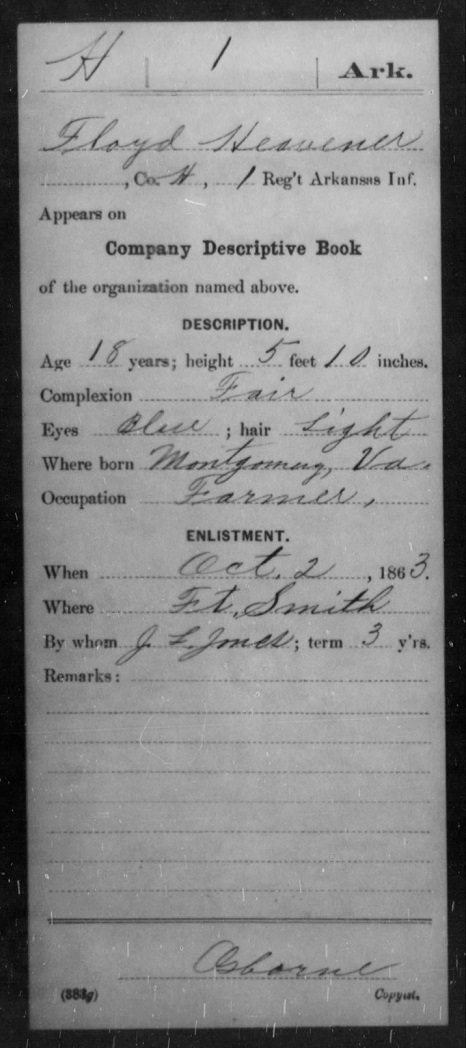 H | 1 | Ark.
Floyd Heavener
, Co. H, 1 Reg't Arkansas Inf.
Appears on
Company Descriptive Book
of the organization named above.
DESCRIPTION.
Age 18 years; height 5 feet 10 inches.
Complexion Fair
Eyes Blue ; hair Light
Where born Montgomery, Va.
Occupation Farmer,
ENLISTMENT.
When Oct. 2, 1863.
Where Ft. Smith
By whom J. L. Jones; term 3 y'rs.
Remarks:
Osborne
(383g) Copyist.